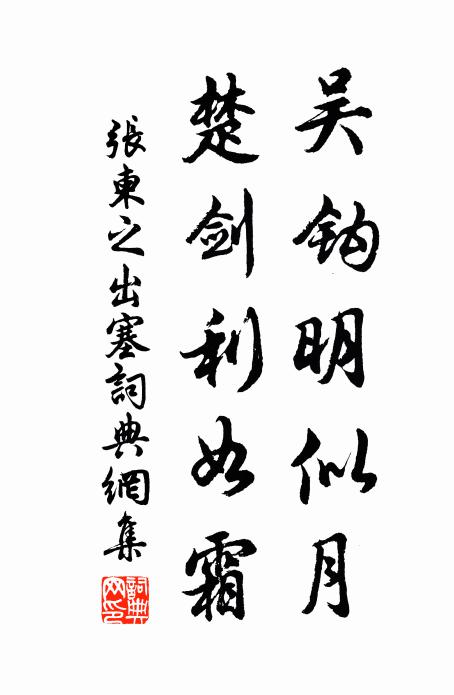 吴钩明似月
楚剑利如霜
張柬之出塞詞典網集
詞典
网印